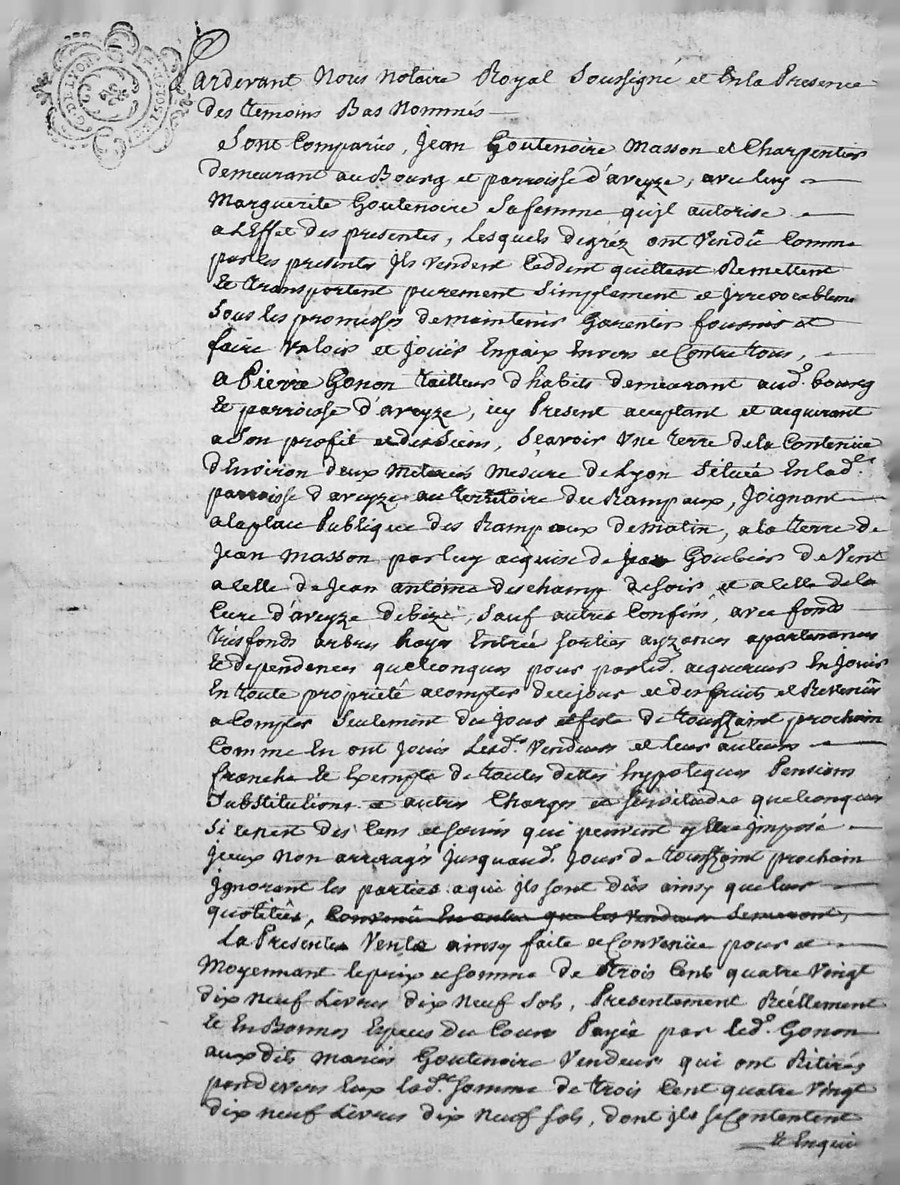 G. DE LYON
Pardevant Nous Notaire Royal Soussigné et En la Presence
des temoins Bas Nommés
Sont Comparus, Jean Goutenoire Masson et Charpentier
demeurant au Bourg et parroisse d'aveyze, avec luy
Marguerite Goutenoire Sa femme qu'jl autorise
a L'Effet des presentes, Lesquels de gréz ont Vendû Comme
par ces presentes Jls Vendent Ceddent quittent Remettent
Et transportent purement Simplement et Jrrevocableme
Sous les promesses de maintenir Garentir fournir et
faire Valoir et Jouir En paix Envers et Contre tous,
a Pierre Gonon tailleur d'habits demeurant aud. bourg
Et parroisse d'aveyze, icy Present acceptant et acquerant
a Son profit et des Siens, Sçavoir Une terre de la Contenüe
d'Environ deux Meterées Mesure de Lyon Située En lad.
parroisse d'aveyze au territoire des Rampaux, Joignant
a la place Publique des Rampaux de matin, a la terre de
Jean Masson par luy acquise de Jean Goubier de Vent
a celle de Jean antoine deschamp de soir, et a celle de la
Cure d'aveyze de bize, Sauf autres Confins, avec fonds
tres fonds arbres hayes Entrées sorties ayzances apartenances
Et dependences quelconques pour par led. acquereur En Jouir
En toute proprieté a compter de ce jour et des fruits et Revenûs
a Compter Seulement du Jour et feste de toussaint prochain
Comme En ont Jouis Lesd. Vendeurs et leurs auteurs
franche Et Exempte de toutes dettes hypoteques Pensions
Substitutions et autres Charges et Servitudes quelconques
Si ce n'est des Cens et servis qui peuvent y Etre Jmposé
Jceux non arreragés Jusqu'aud. Jour de toussaint prochain
Jgnorant les parties a qui ils sont dûs ainsy que leurs
quotitées, Convenû En outre que les Vendeurs
La Presente Vente ainsy faite et Convenüe pour et
Moyennant le prix et somme de trois Cent quatre Vingt
dix Neuf Livres dix Neuf Sols, Presentement Réellement
Et En Bonnes Especes du Cours Payée par led. Gonon
aux dits Mariés Goutenoire Vendeurs qui ont Rétirés
pardevers Eux lad. somme de trois Cent quatre Vingt
dix Neuf Livres dix Neuf Sols, dont ils se Contentent
Et En qui